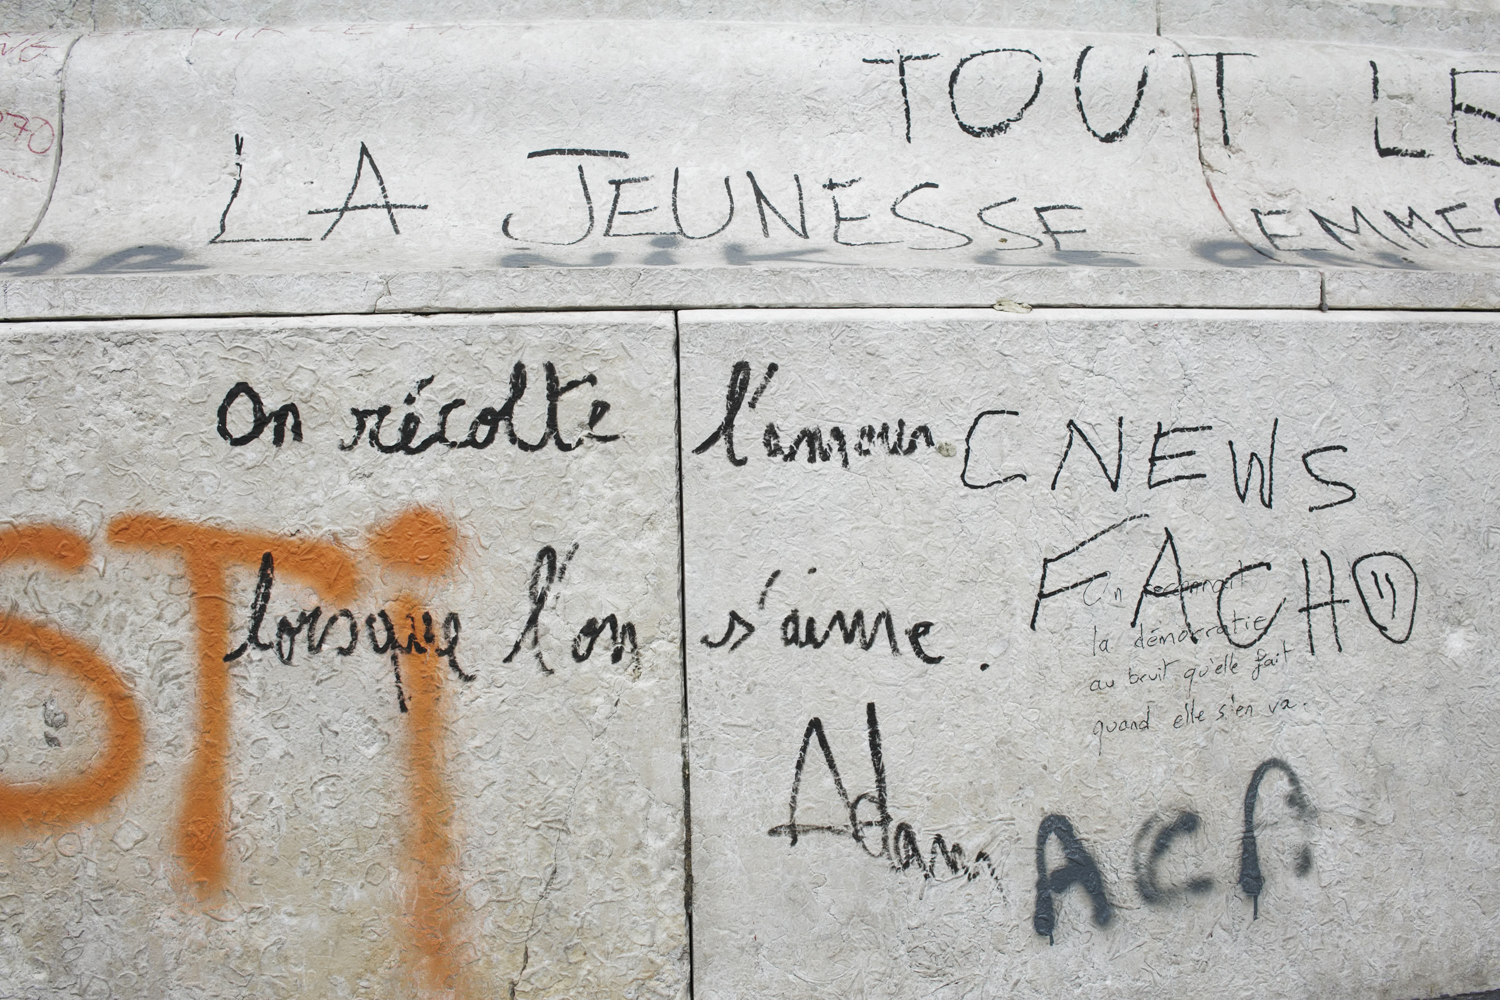 TOUT LE
70
LA JEUNESSE EMMER
On récolte l'amour
lorsque l'on s'aime.
Adam
CNEWS
FACHO
On reconnait
la démocratie
au bruit qu'elle fait
quand elle s'en va.
STi